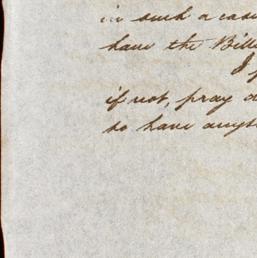 in such a case
have the Bill
I
if not, pray
to have any